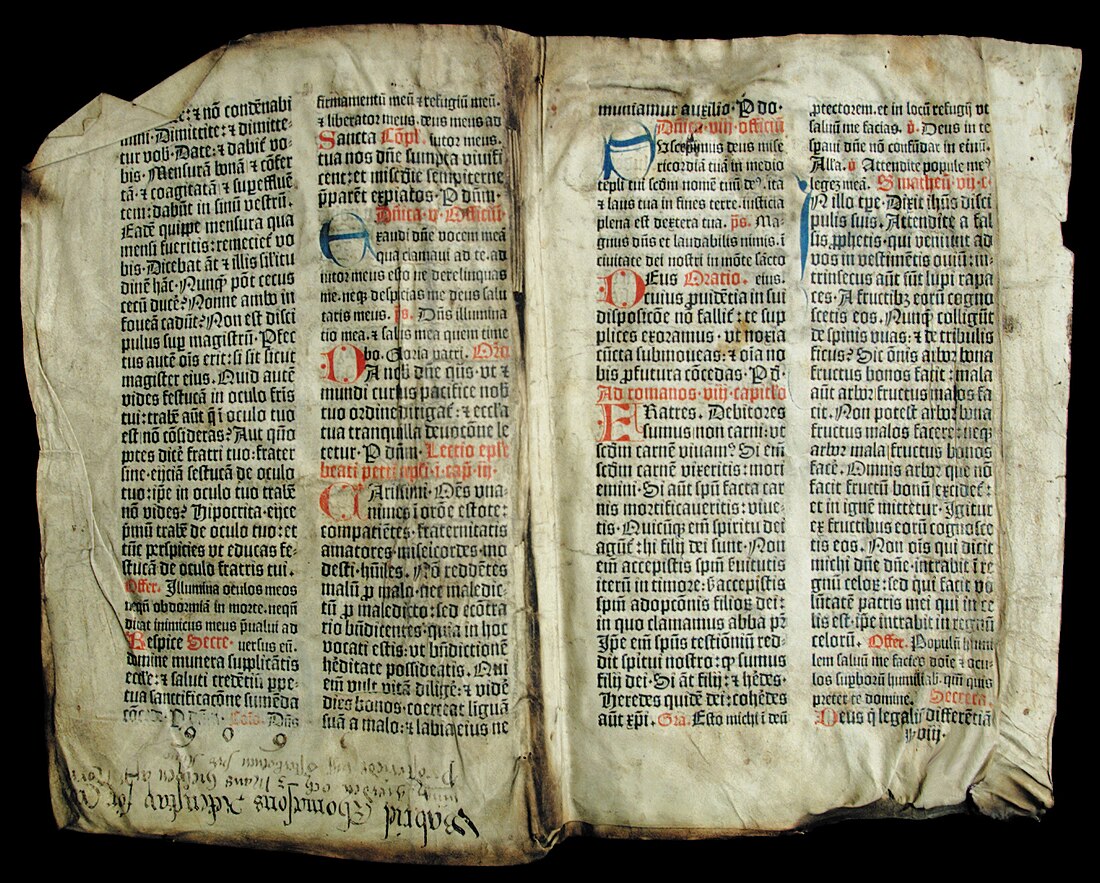 et nō condēnabi
mini. Dimittite: ⁊ dimitte-
tur vob. Date: ⁊ dabit̄ vo-
bis. Mensurā bonā ⁊ cōfer
tā ⁊ coagitatā ⁊ supeffluē
tem: dabūt in sinū vestrū.
Eadē quippe mensura qua
mensi fueritis: remetiet̄ vo
bis. Dicebat āt ⁊ illis sil'itu
dinē hāc. Nunqͥ pōt cecus
cecū ducē? Nonne ambo in
foueā cadūt? Non est disci
pulus sup magistrū. Pfec
tus autē oīs erit: si sit sicut
magister eius. Quid autē
vides festucā in oculo fr̄is
tui: trabē aūt q̄ ī oculo tuo
est nō cōsideras? Aut quō
potes dicē fratri tuo: frater
sine eijciā festucā de oculo
tuo: ip̄e in oculo tuo trabē
nō vides? Hipocrita eijce
p̄mū trabē de oculo tuo: et
tūc perspicies vt educas fe-
stucā de oculo fratris tui.
Offer. Illumina oculos meos
neqn̄ obdormiā in morte. neqn̄
dicat inimicus meus p̄ualui ad
Respice Secre. uersus eū.
domine munera supplicātis
eccl'e: ⁊ saluti credētiū ppe-
tua sanctificacōne sumēda
P dn̄m. Cōio. Dn̄s
Gabriel Thomessons
firmamentū meū ⁊ refugiū meū.
⁊ liberator meus. deus meus ad
Sancta Cōpl. iutor meus.
tua nos dn̄e sumpta viuifi
cent: et misedie sempiterne
p̄parēt expiatos. P dn̄m
Dn̄ica. v. Officiū.
Exaudi dn̄e vocem meā
qua clamaui ad te. ad
iutor meus esto ne derelinquas
me. neq̄ despicias me deus salu
taris meus. ps. Dn̄s illumina
tio mea. ⁊ salus mea quem time
bo. Gloria patri. Oro
DA nob dn̄e q̄s. vt ⁊
mundi cursus pacifice nob
tuo ordine dirigat̄: ⁊ eccl'a
tua tranquilla deuocōne le
tetur. P dn̄m. Lectio epl'e
beati petri apl'i. i. cap. iii.
CArissimi. Om̄es vna-
nimes ī orōe estote:
compatiētes. fraternitatis
amatores misericordes. mo
desti. hūiles. Nō reddētes
malū p malo. nec maledic-
tū p maledicto: sed ecōtra
rio bn̄dicentes. quia in hoc
vocati estis: vt bn̄dictionē
hēditate possideatis. Qui
em̄ vult vitā diligē: ⁊ vidē
dies bonos. coerceat liguā
suā a malo: ⁊ labia eius ne
muniamur auxilio. P do.
Dn̄ica. viii. officiū
Suscepimus deus mise
ricordiā tuā in medio
tēpli tui scdm nomē tuū de'. ita
⁊ laus tua in fines terre. iusticia
plena est dextera tua. ps. Ma-
gnus dn̄s et laudabilis nimis. ī
ciuitate dei nostri in mōte sācto
DEus Oratio. eius.
cuius prouidētia in sui
dispositōe nō fallit̄: te sup
plices exoramus. vt noxia
cūcta submoueas: ⁊ oīa no
bis pfutura cōcedas. P d.
Ad romanos. viij. capitlo
FRatres. Debitores
sumus non carni: vt
scdm carnē viuam? Si em̄
scdm carnē vixeritis: mori
emini. Si aūt spū facta car
nis mortificaueritis: viue-
tis. Quicūq em̄ spiritu dei
agūt̄: hi filij dei sunt. Non
em̄ accepistis spm̄ ẜuitutis
iterū in timore: ẜ accepistis
spm̄ adopcōnis filioꝝ dei:
in quo clamamus abba pr̄
Ip̄e em̄ spūs testīoniū red-
dit spiritui nostro: ꝙ sumus
filij dei. Si āt filij: ⁊ hēdes.
Heredes quidē dei: cohēdes
aūt xp̄i. Gra. Esto michi ī deū
ptectorem. et in locū refugij vt
saluū me facias. v̄. Deus in te
speraui dn̄e nō confūdar in eternū.
Alla. v̄ Attendite popule me'
legē meā. S. matheū. vii. c.
In illo tpe. Dixit ihūs disci
pulis suis. Attendite a fal
sis pphetis. qui veniunt ad
vos in vestimētis ouiū: in-
trinsecus aūt sūt lupi rapa
ces. A fructibꝫ eorū cogno
scetis eos. Nunqͥ colligunt
de spinis vuas: ⁊ de tribulis
ficus? Sic om̄is arbor bona
fructus bonos facit: mala
aūt arbor fructus malos fa
cit. Non potest arbor bona
fructus malos facere: neqꝫ
arbor mala fructus bonos
facē. Omnis arbor que nō
facit fructū bonū excidet̄:
et in ignē mittetur. Igitur
ex fructibus eorū cognosce
tis eos. Non oīs qui dicit
michi dn̄e dn̄e. intrabit ī re
gnū celoꝝ: sed qui facit vo
lūtatē patris mei qui in ce
lis est. ip̄e intrabit in regnū
celorū. Offer. Populū humi
lem saluū me facies dn̄e ⁊ ocu-
los supborū humiliab. qm̄ quis
preter te domine. Secreta.
Deus q̄ legaliū differētiā
viij.